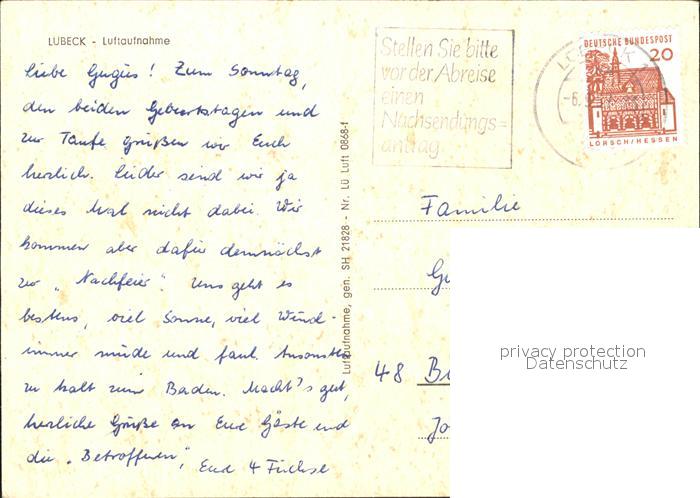 LÜBECK - Luftaufnahme
Liebe Gugus! Zum Sonntag,
den beiden Geburtstagen und
zur Taufe grüßen wir Euch
herzlich. Leider sind wir ja
dieses Mal nicht dabei. Wir
kommen aber dafür demnächst
zur „Nachfeier". Uns geht es
bestens, viel Sonne, viel Wind -
immer müde und faul. Ansonsten
zu kalt zum Baden. Macht's gut,
herzliche Grüße an Eure Gäste und
die „Betroffenen", Eure 4 Füchse
Luftaufnahme, gen. SH 21828 - Nr. LÜ Luft 0868-f
Stellen Sie bitte
vor der Abreise
einen
Nachsendungs=
antrag
-6.
DEUTSCHE BUNDESPOST
20
LORSCH/HESSEN
Familie
48
privacy protection
Datenschutz